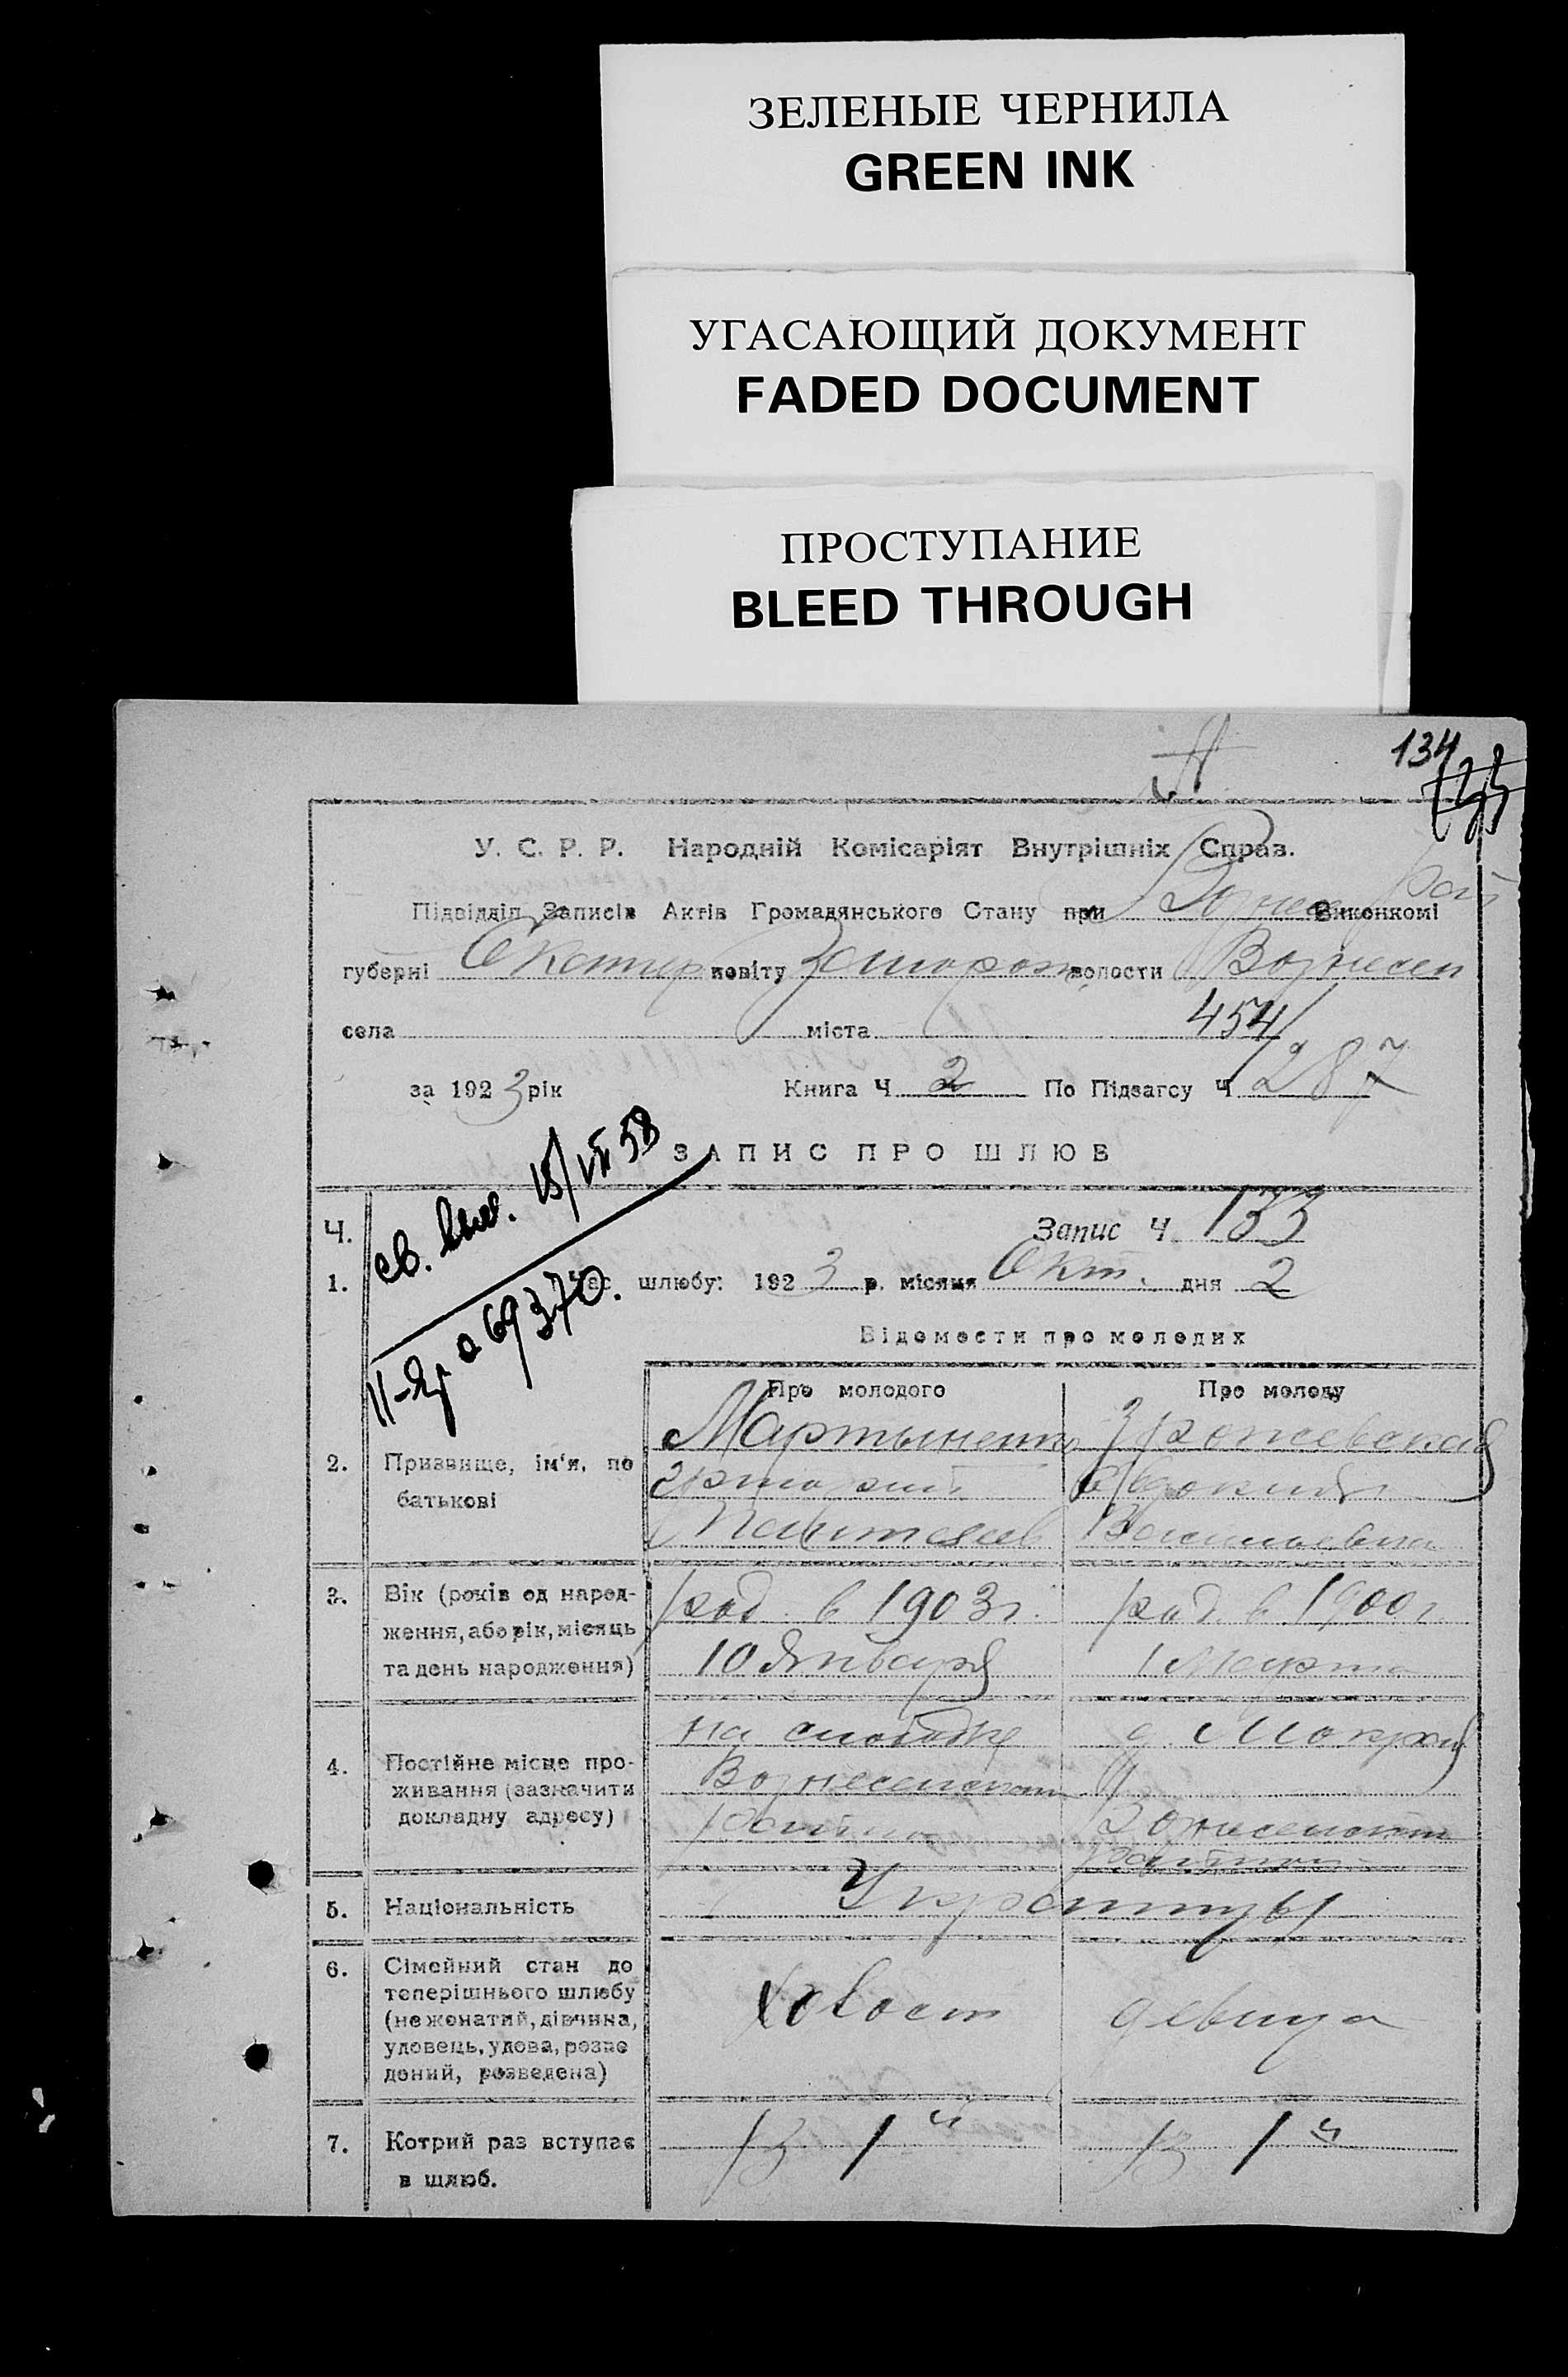 ЗЕЛЕНЫЕ ЧЕРНИЛА
GREEN INK
УГАСАЮЩИЙ ДОКУМЕНТ
FADED DOCUMENT
ПРОСТУПАНИЕ
BLEED THROUGH
134
У. С. Р. Р. Народній Комісаріят Внутрішніх Справ.
Підвідділ Записів Актів Громадянського Стану при Вознесен Рай Виконкомі
губерні Екатер повіту Запорож волости Вознесен
села міста 454
за 1923 рік Книга Ч 2 По Підзагсу Ч 287
ЗАПИС ПРО ШЛЮБ
св. выд. 15/VII 58
Ч. Запис Ч 133
1. Час шлюбу: 1923 р. місяця Окт. дня 2
69370.
Відомости про молодих
Про молодого Про молоду
Мартыненко
2. Призвище, ім'я, по батькові
Григорий Евдокия
Пантелеев Васильевна
3. Вік (років од народження, або рік, місяць та день народження)
род. в 1903 г. род. в 1900 г
10 Января 1 Марта
4. Постійне місце проживання (зазначити докладну адресу)
на слободке
Вознесенском
района Вознесенском
района
5. Національність Украинцы
6. Сімейний стан до теперішнього шлюбу (не жонатий, дівчина, удовець, удова, розведений, розведена)
холост девица
7. Котрий раз вступає в шлюб.
в 1й в 1й